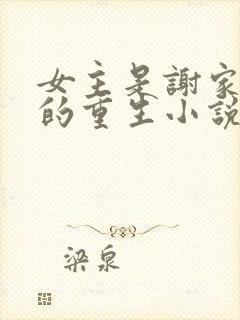 女主是謝家
的重生小說
梁泉